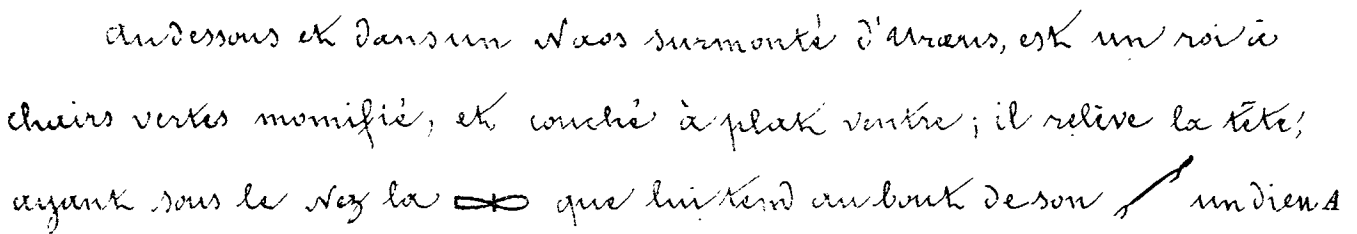 Au dessous et dans un Naos surmonté d'Uraeus, est un roi à
chairs vertes momifié, et couché à plat ventre; il relève la tête,
ayant sous le Nez la que lui tend au bout de son un dieu A